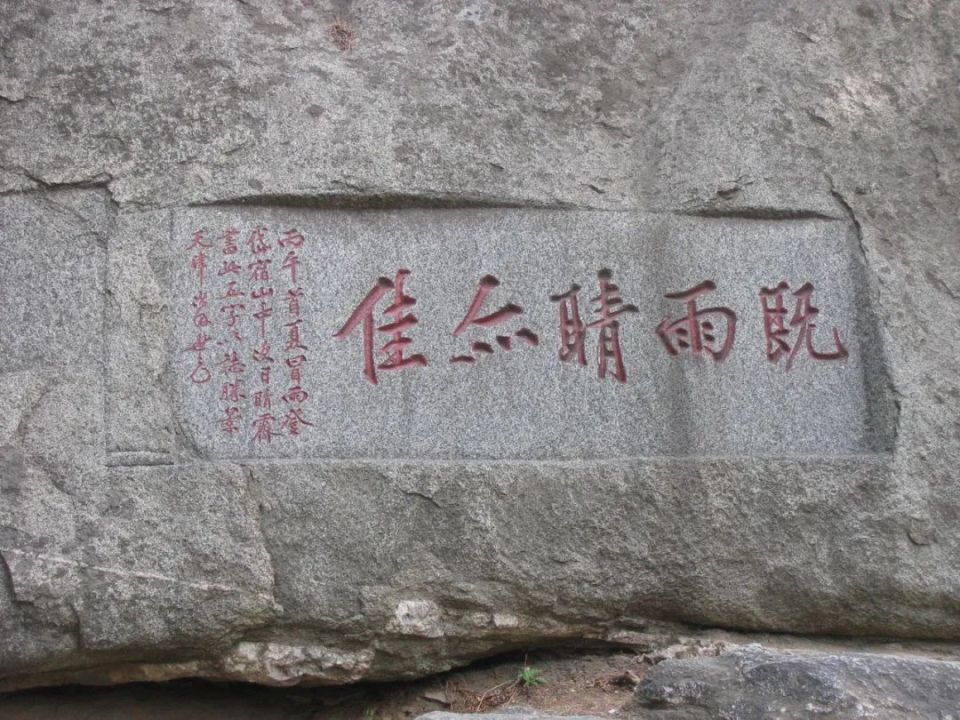 既雨晴亦佳
丙午首夏冒雨登
岱宿山中次日晴霽
書此五字以志勝景
天津